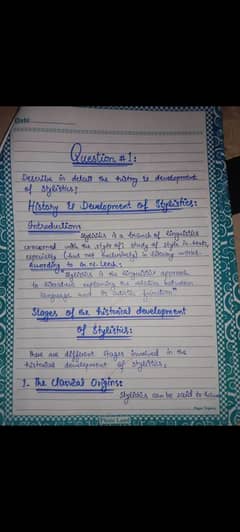 Date
Question #1:
Describe in detail the history & development
of stylistics?
History & Development of Stylistics:
Introduction:
Stylistics is a branch of linguistics
concerned with the style of; study of style in texts,
especially (but not exclusively) in literary works.
According to G.N. Leech:
"Stylistics is the linguistic approach
to literature explaining the relation between
language and its artistic function"
Stages of the historical development
of Stylistics:
There are different stages involved in the
historical development of stylistics.
1. The Classical Origins:
Stylistics can be said to